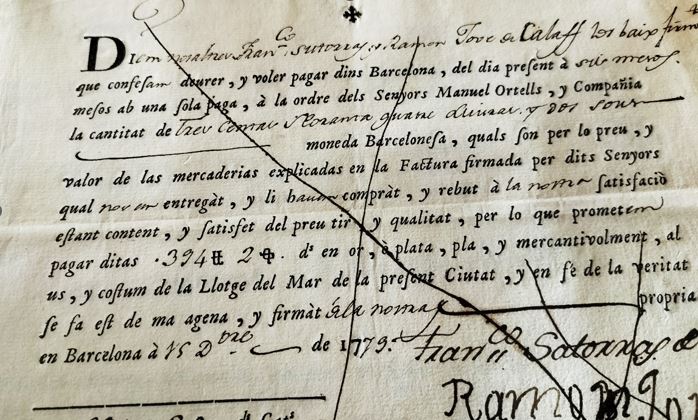 Diem nosaltres Fran.co Sutorras, y Ramon Tove de Calaff los baix firm
que confesam deurer, y voler pagar dins Barcelona, del dia present à sis mesos
mesos ab una sola paga, à la ordre dels Senyors Manuel Ortells, y Compañia
la cantitat de Tres Centas Noranta quatre lliuras, y dos sous
moneda Barcelonesa, quals son per lo preu, y
valor de las mercaderias explicadas en la Factura firmada per dits Senyors
qual nos en entregàt, y li havem compràt, y rebut à la nostra satisfaciò
estant content, y satisfet del preu tir y qualitat, per lo que prometem
pagar ditas 394 ₶ 2 d.s en or, ò plata, pla, y mercantivolment, al
us, y costum de la Llotge del Mar de la present Ciutat, y en fè de la veritat
se fa est de ma agena, y firmàt de la nostra propria
en Barcelona à 15 D.bre de 1779.
Fran.co Sotorras
Ramon